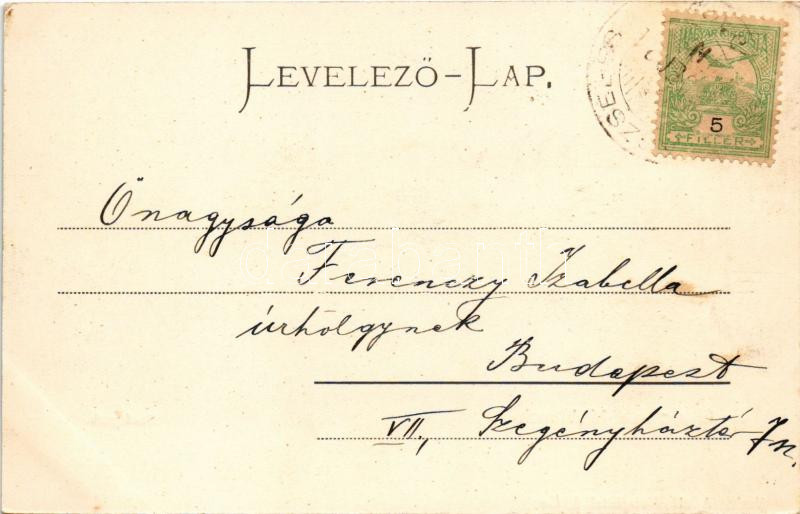 LEVELEZŐ-LAP.
MAGYAR KIR. POSTA
5
FILLÉR
Őnagysága
Ferenczy Izabella
úrhölgynek
Budapest
VII., Szegényháztér 7n.